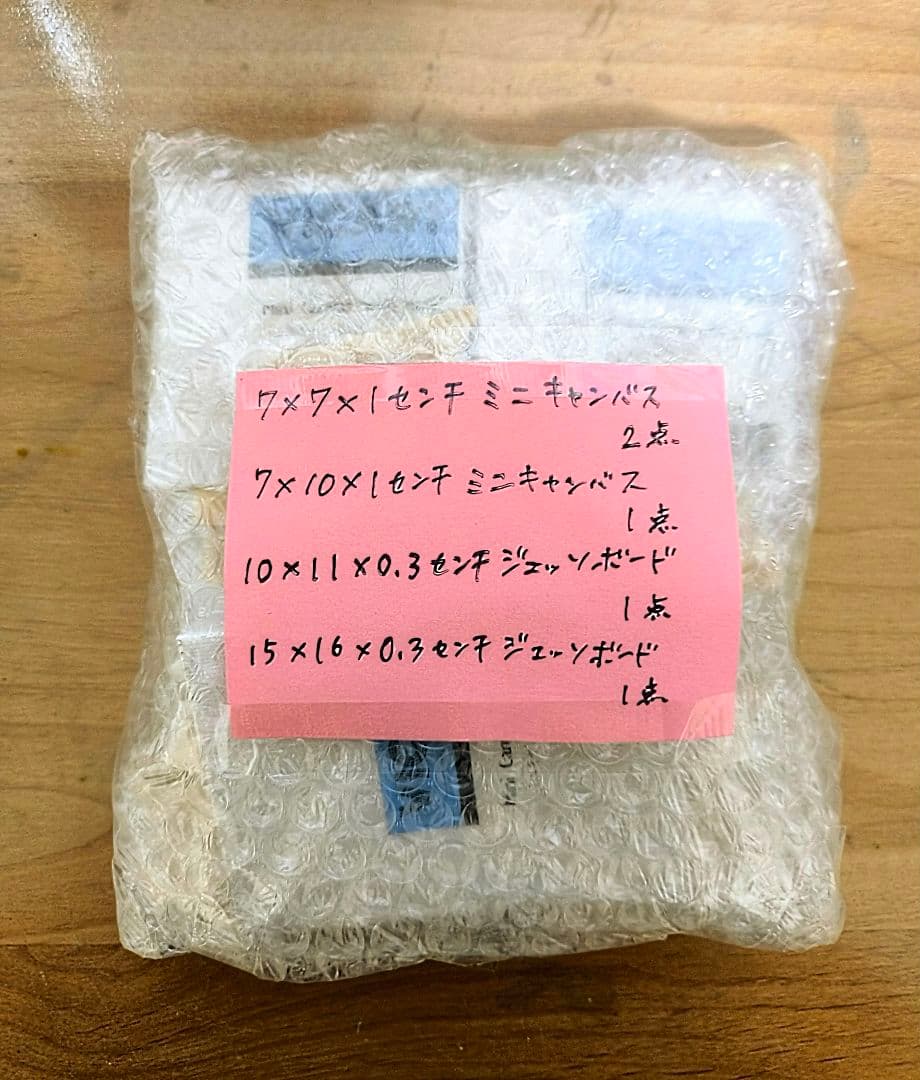 7×7×1センチ ミニキャンバス
2点
7×10×1センチ ミニキャンバス
1点
10×11×0.3センチ ジェッソボード
1点
15×16×0.3センチ ジェッソボード
1点
Mini
Mini Can